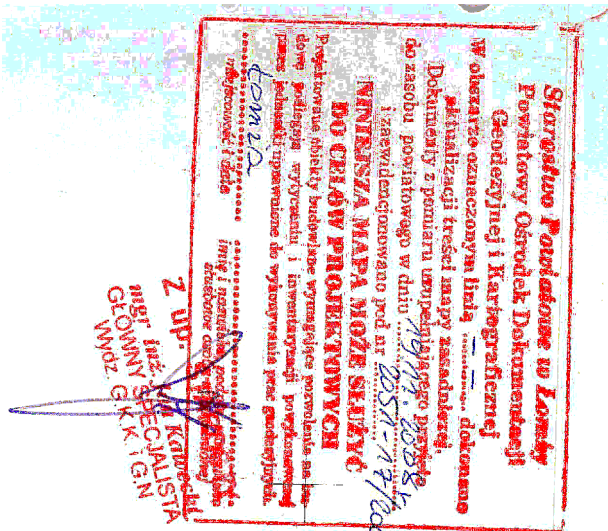 Starostwo Powiatowe w Łomży
Powiatowy Ośrodek Dokumentacji
Geodezyjnej i Kartograficznej
W obszarze oznaczonym linią — — dokonano
aktualizacji treści mapy zasadniczej.
Dokumenty z pomiaru uzupełniającego przyjęto
do zasobu powiatowego w dniu 19.11.2008 r
i zaewidencjonowano pod nr 2051-17/
NINIEJSZA MAPA MOŻE SŁUŻYĆ
DO CELÓW PROJEKTOWYCH
Projektowane obiekty budowlane wymagające pozwolenia na
dowę podlegają wytyczeniu i inwentaryzacji powykonawczej
przez jednostki uprawnione do wykonywania prac geodezyjnych
Łomża
miejscowość i data
imię i nazwisko
Z up
mgr inż.
GŁÓWNY SPECJALISTA
Wydz. G.K.K i G.N